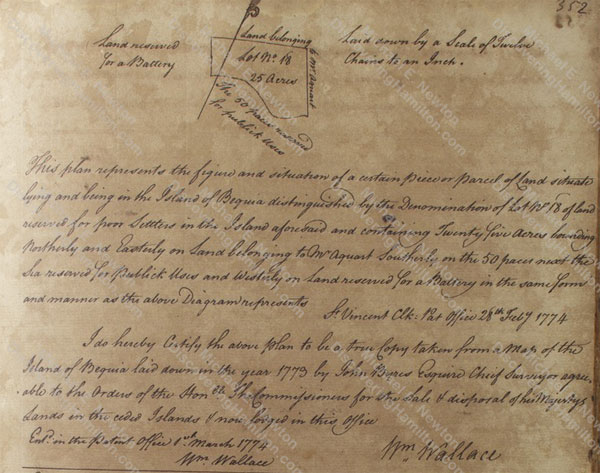 352
Land reserved
for a Battery
Land belonging
to Mr Aquart
Lot No. 18
25 Acres
The 50 paces reserved
for publick Uses
Laid down by a Scale of Twelve
Chains to an Inch.
This plan represents the figure and situation of a certain Piece or Parcel of Land situate
lying and being in the Island of Bequia distinguished by the Denomination of Lot No. 18 of land
reserved for poor Settlers in the Island aforesaid and containing Twenty five Acres bounding
Northerly and Easterly on Land belonging to Mr Aquart Southerly on the 50 paces next the
Sea reserved for Publick Uses and Westerly on Land reserved for a Battery in the same form
and manner as the above Diagram represents
St Vincent Clk: Pat Office 28th Feby 1774
I do hereby Certify the above plan to be a true Copy taken from a Map of the
Island of Bequia laid down in the year 1773 by John Byres Esquire Chief Surveyor agree-
able to the Orders of the Honble The Commissioners for the Sale & disposal of his Majestys
Lands in the ceded Islands & now lodged in this Office
Entd. in the Patent Office 1st March 1774
Wm. Wallace
Wm. Wallace